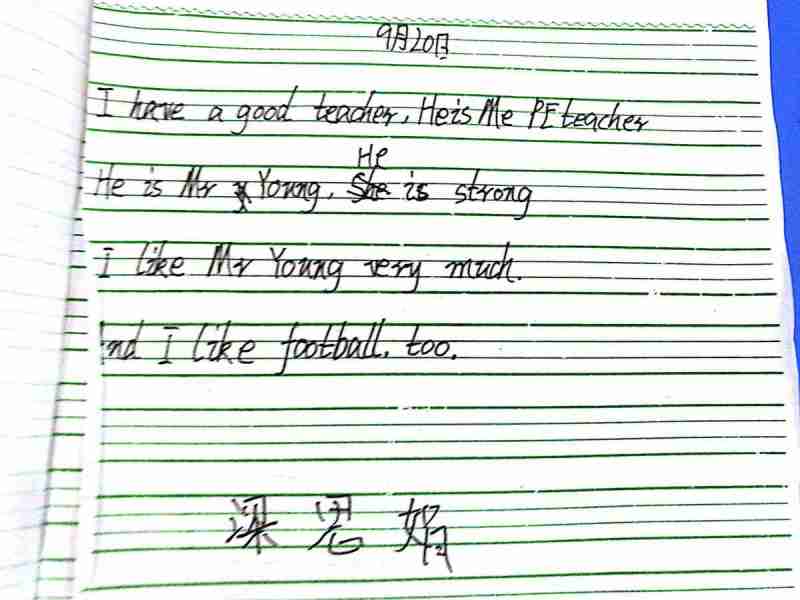 9月20日
I have a good teacher. He is Me PE teacher
He is Mr Young. He is strong
I like Mr Young very much.
And I like football. too.